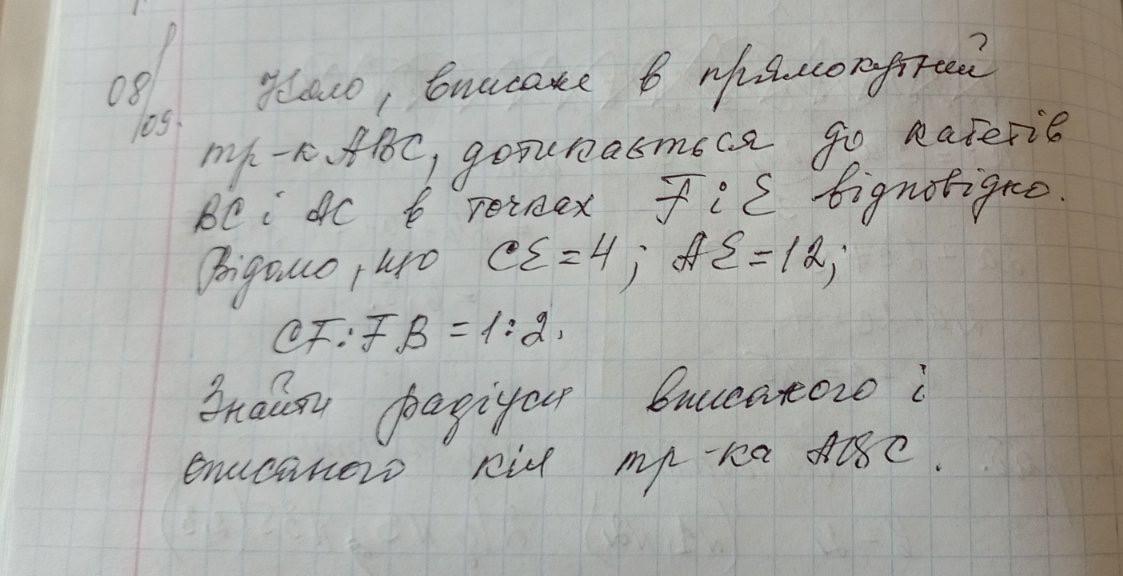 08/09.
Коло, вписане в прямокутний
тр-к ABC, дотикається до катетів
BC і AC в точках F і E відповідно.
Відомо, що CE = 4; AE = 12;
CF : FB = 1 : 2.
Знайти радіуси вписаного і
описаного кіл тр-ка ABC.